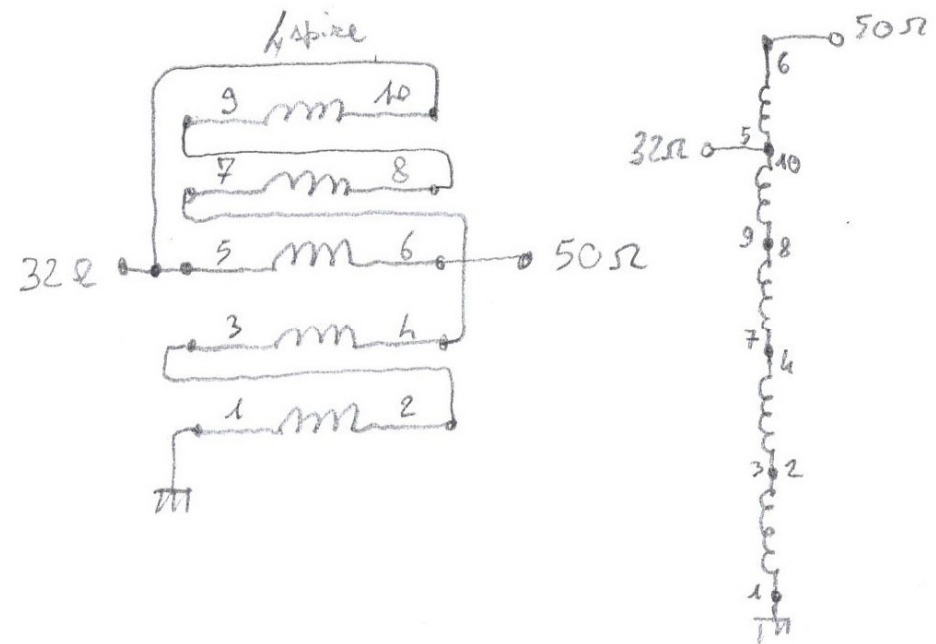 4 spire
9 10
7 8
32Ω 5 6 50Ω
3 4
1 2
50Ω
6
32Ω 5
10
9 8
7
4
3 2
1